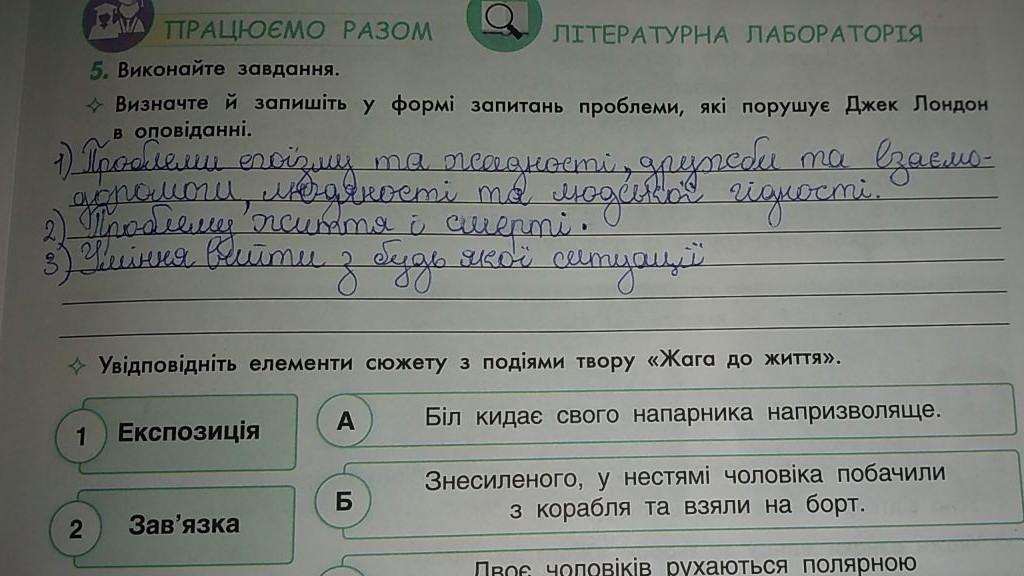 ПРАЦЮЄМО РАЗОМ
ЛІТЕРАТУРНА ЛАБОРАТОРІЯ
5. Виконайте завдання.
✧ Визначте й запишіть у формі запитань проблеми, які порушує Джек Лондон
в оповіданні.
1) Проблеми егоїзму та жадності, дружби та взаємо-
допомоги, людяності та людської гідності.
2) Проблему життя і смерті.
3) Уміння вийти з будь якої ситуації
✧ Увідповідніть елементи сюжету з подіями твору «Жага до життя».
1 Експозиція
А Біл кидає свого напарника напризволяще.
2 Зав'язка
Б Знесиленого, у нестямі чоловіка побачили
з корабля та взяли на борт.
Двоє чоловіків рухаються полярною